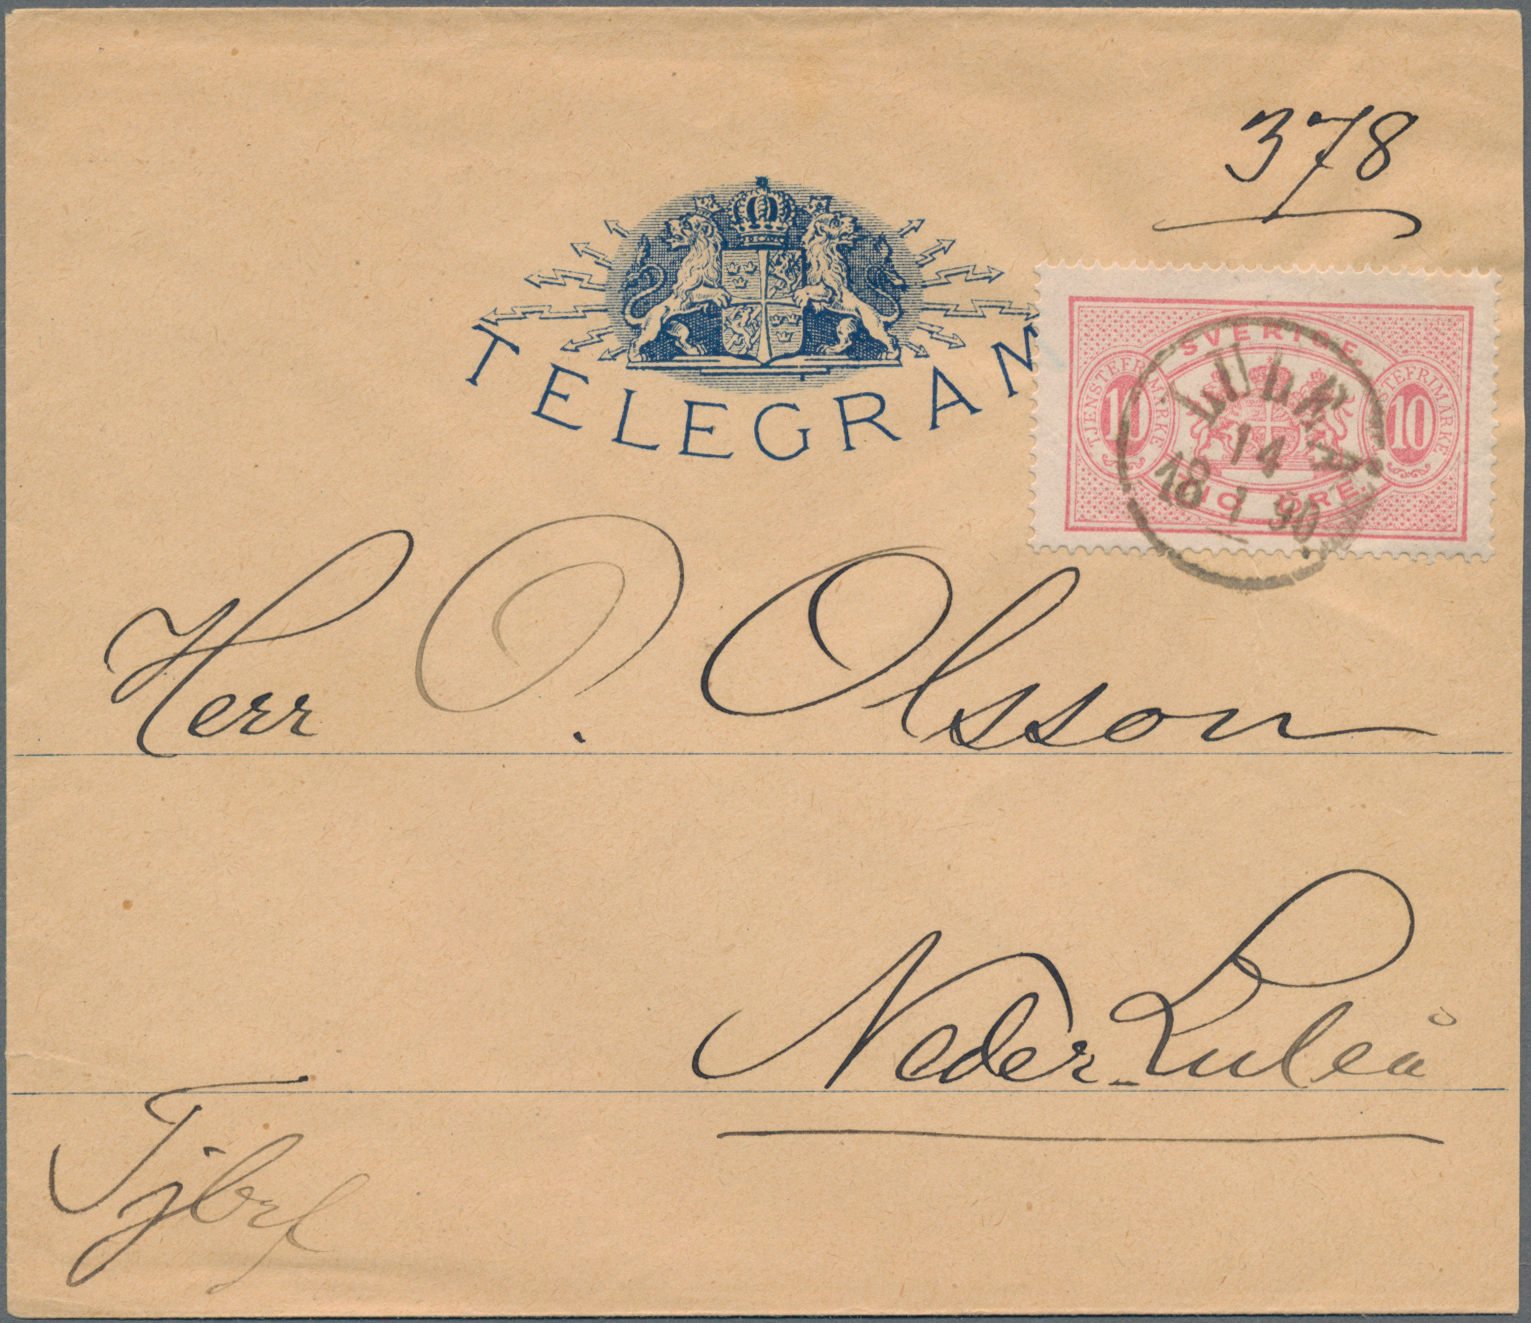 378
TELEGRAM
SVERIGE
TJENSTEFRIMÄRKE
10
TJENSTEFRIMÄRKE
10
TIO ÖRE
LULEÅ
14
18 1 90
Herr O. Olsson
Neder-Luleå
Tjbrf